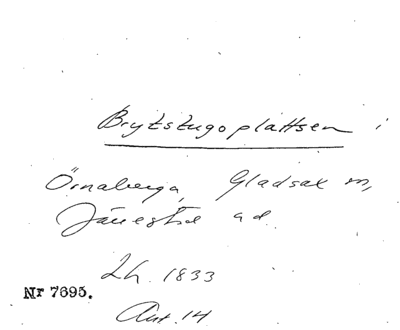 Brytstugoplattsen i
Örnaberga, Gladsax sn,
Järrestad ad.
Lh. 1833
Nr 7695.
Ant. 14